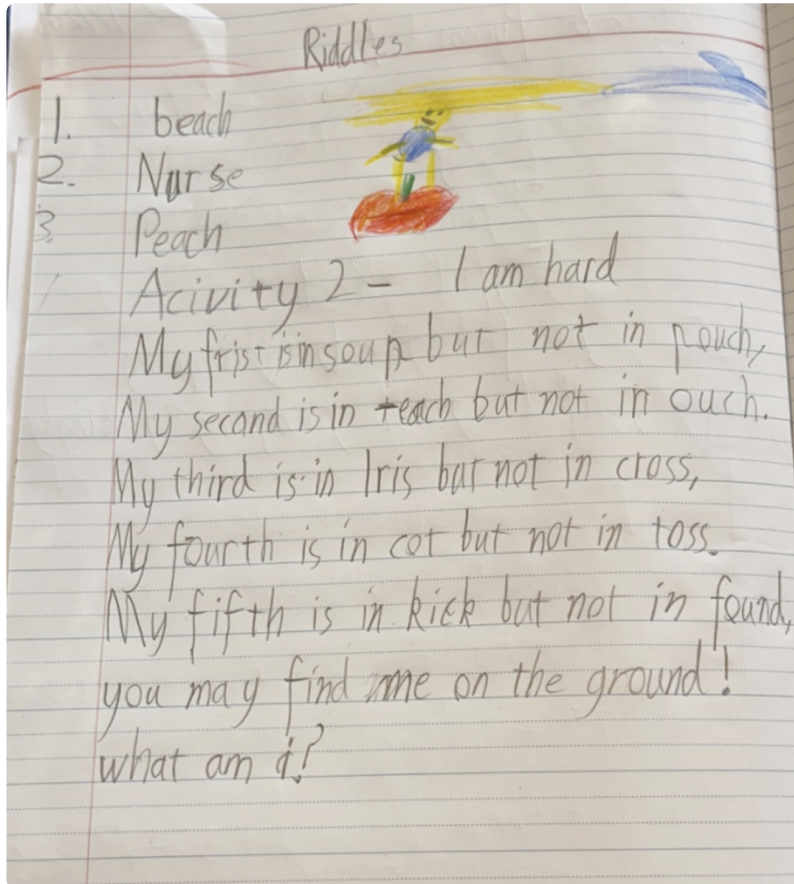 Riddles
1. beach
2. Nurse
3. Peach
Acivity 2 - I am hard
My frist is in soup but not in pouch,
My second is in teach but not in ouch.
My third is in Iris but not in cross,
My fourth is in cot but not in toss.
My fifth is in kick but not in found,
you may find me on the ground!
what am i?